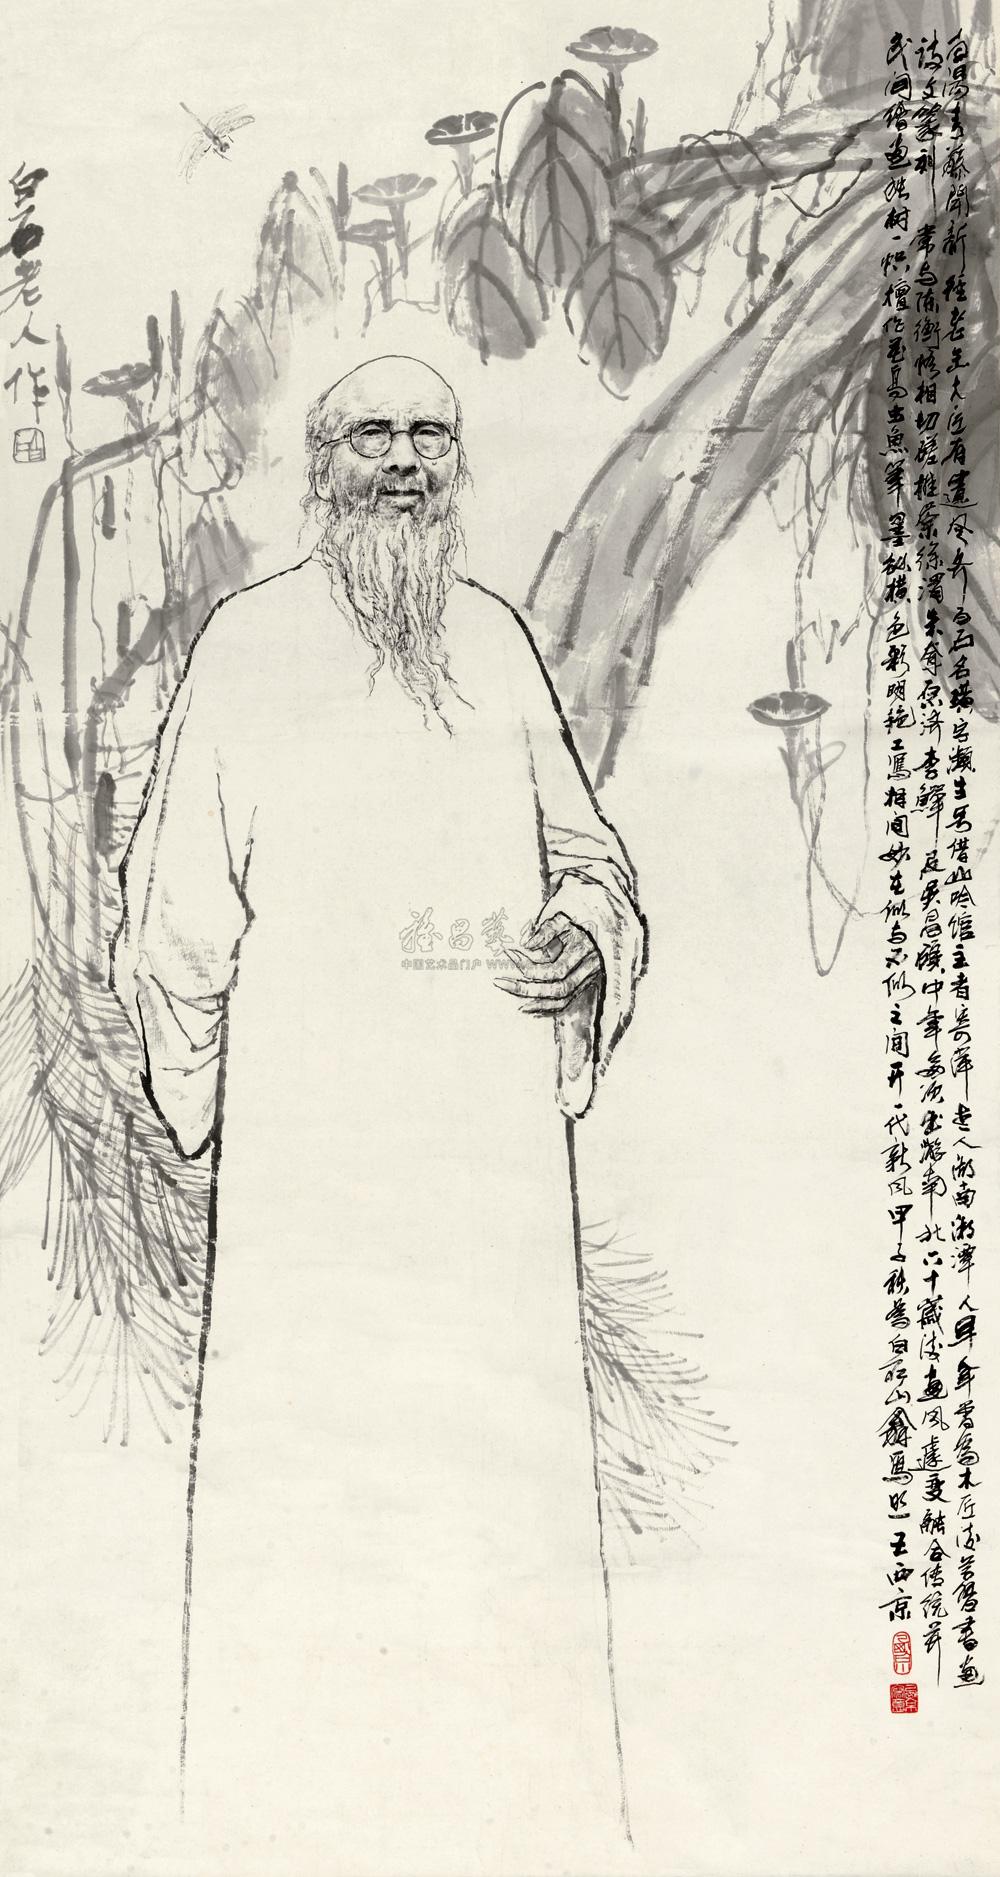 青藤開新大匠有遺风齐白石名璜字瀕生号借山吟馆主者寄萍老人湖南湘潭人早年曾為木匠後苦習書画
诗文篆刻常与陈衡恪相切磋推崇徐渭朱耷原济李鱓及吴昌硕中年多次出游南北六十歲後画风遽变融合传统并
民间绘画独树一帜擅作花鸟虫魚筆墨纵横色彩明艳工写相间妙在似与不似之间开一代新风甲子秋為白石山翁寫照王西京
白石老人作
中国艺术品门户